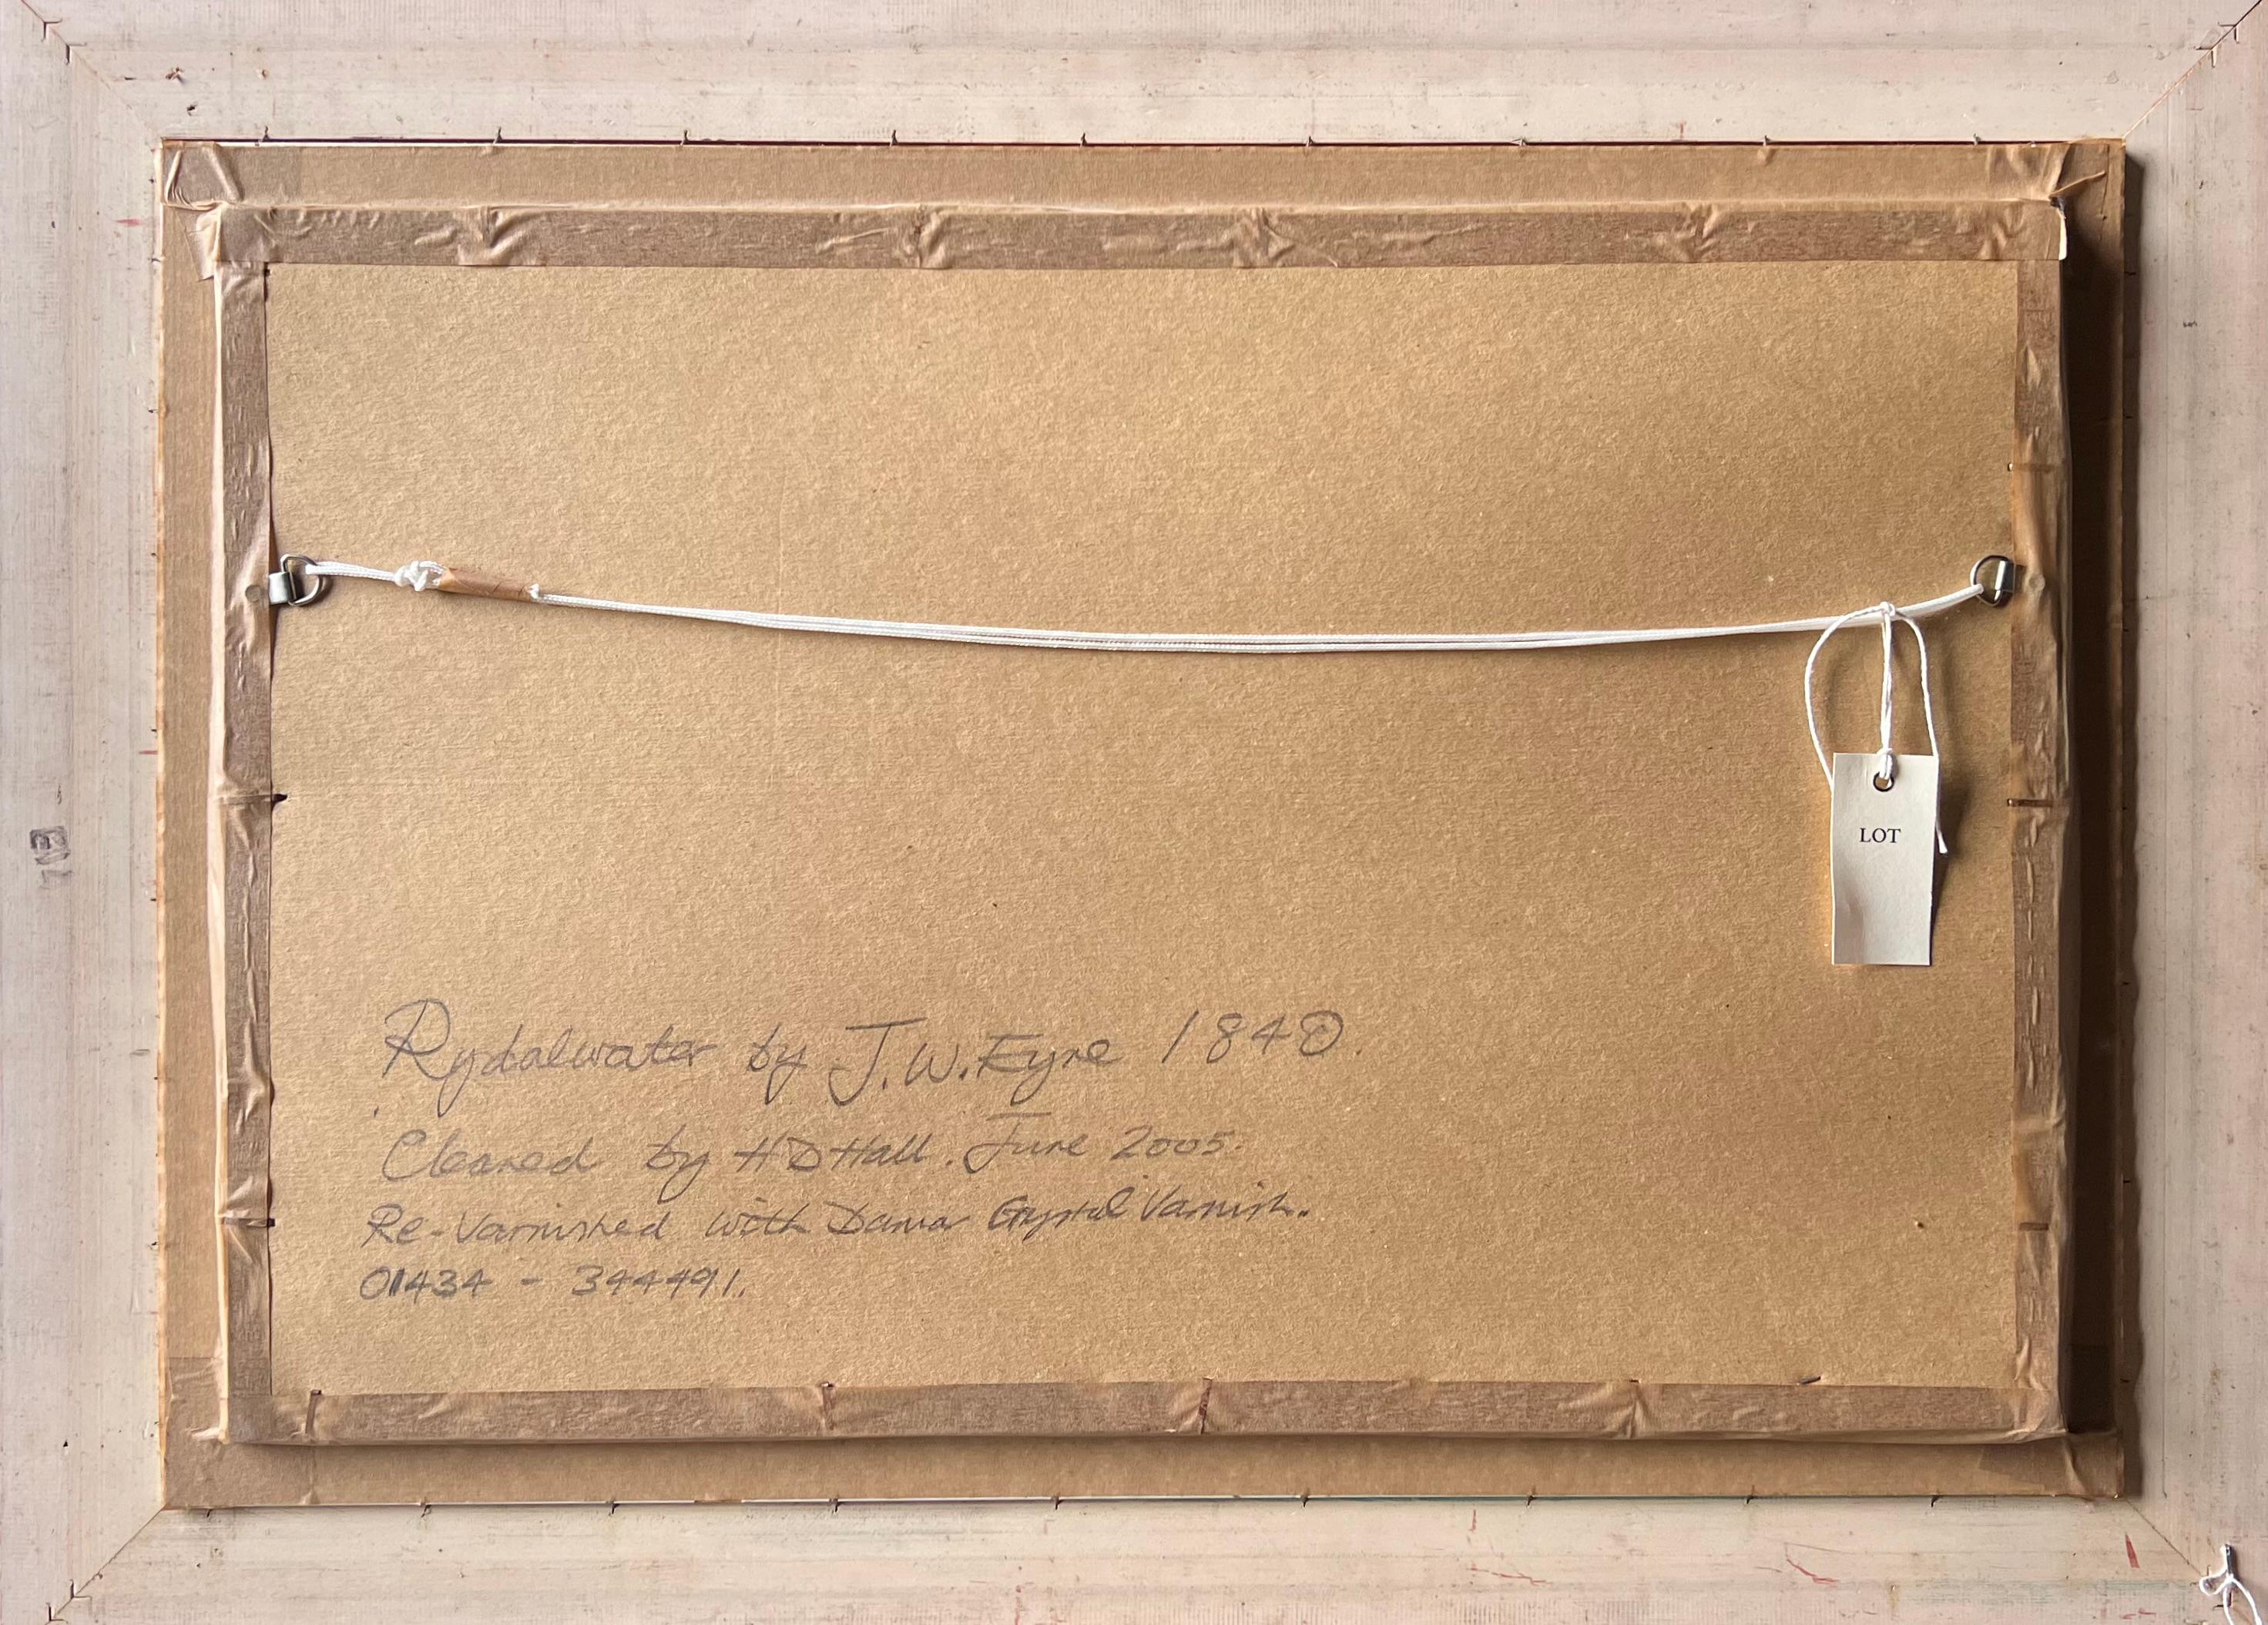 LOT
Rydalwater by J.W. Eyre 1840.
Cleaned by H D Hall. June 2005.
Re-Varnished with Damar Crystal Varnish.
01434 - 344491.